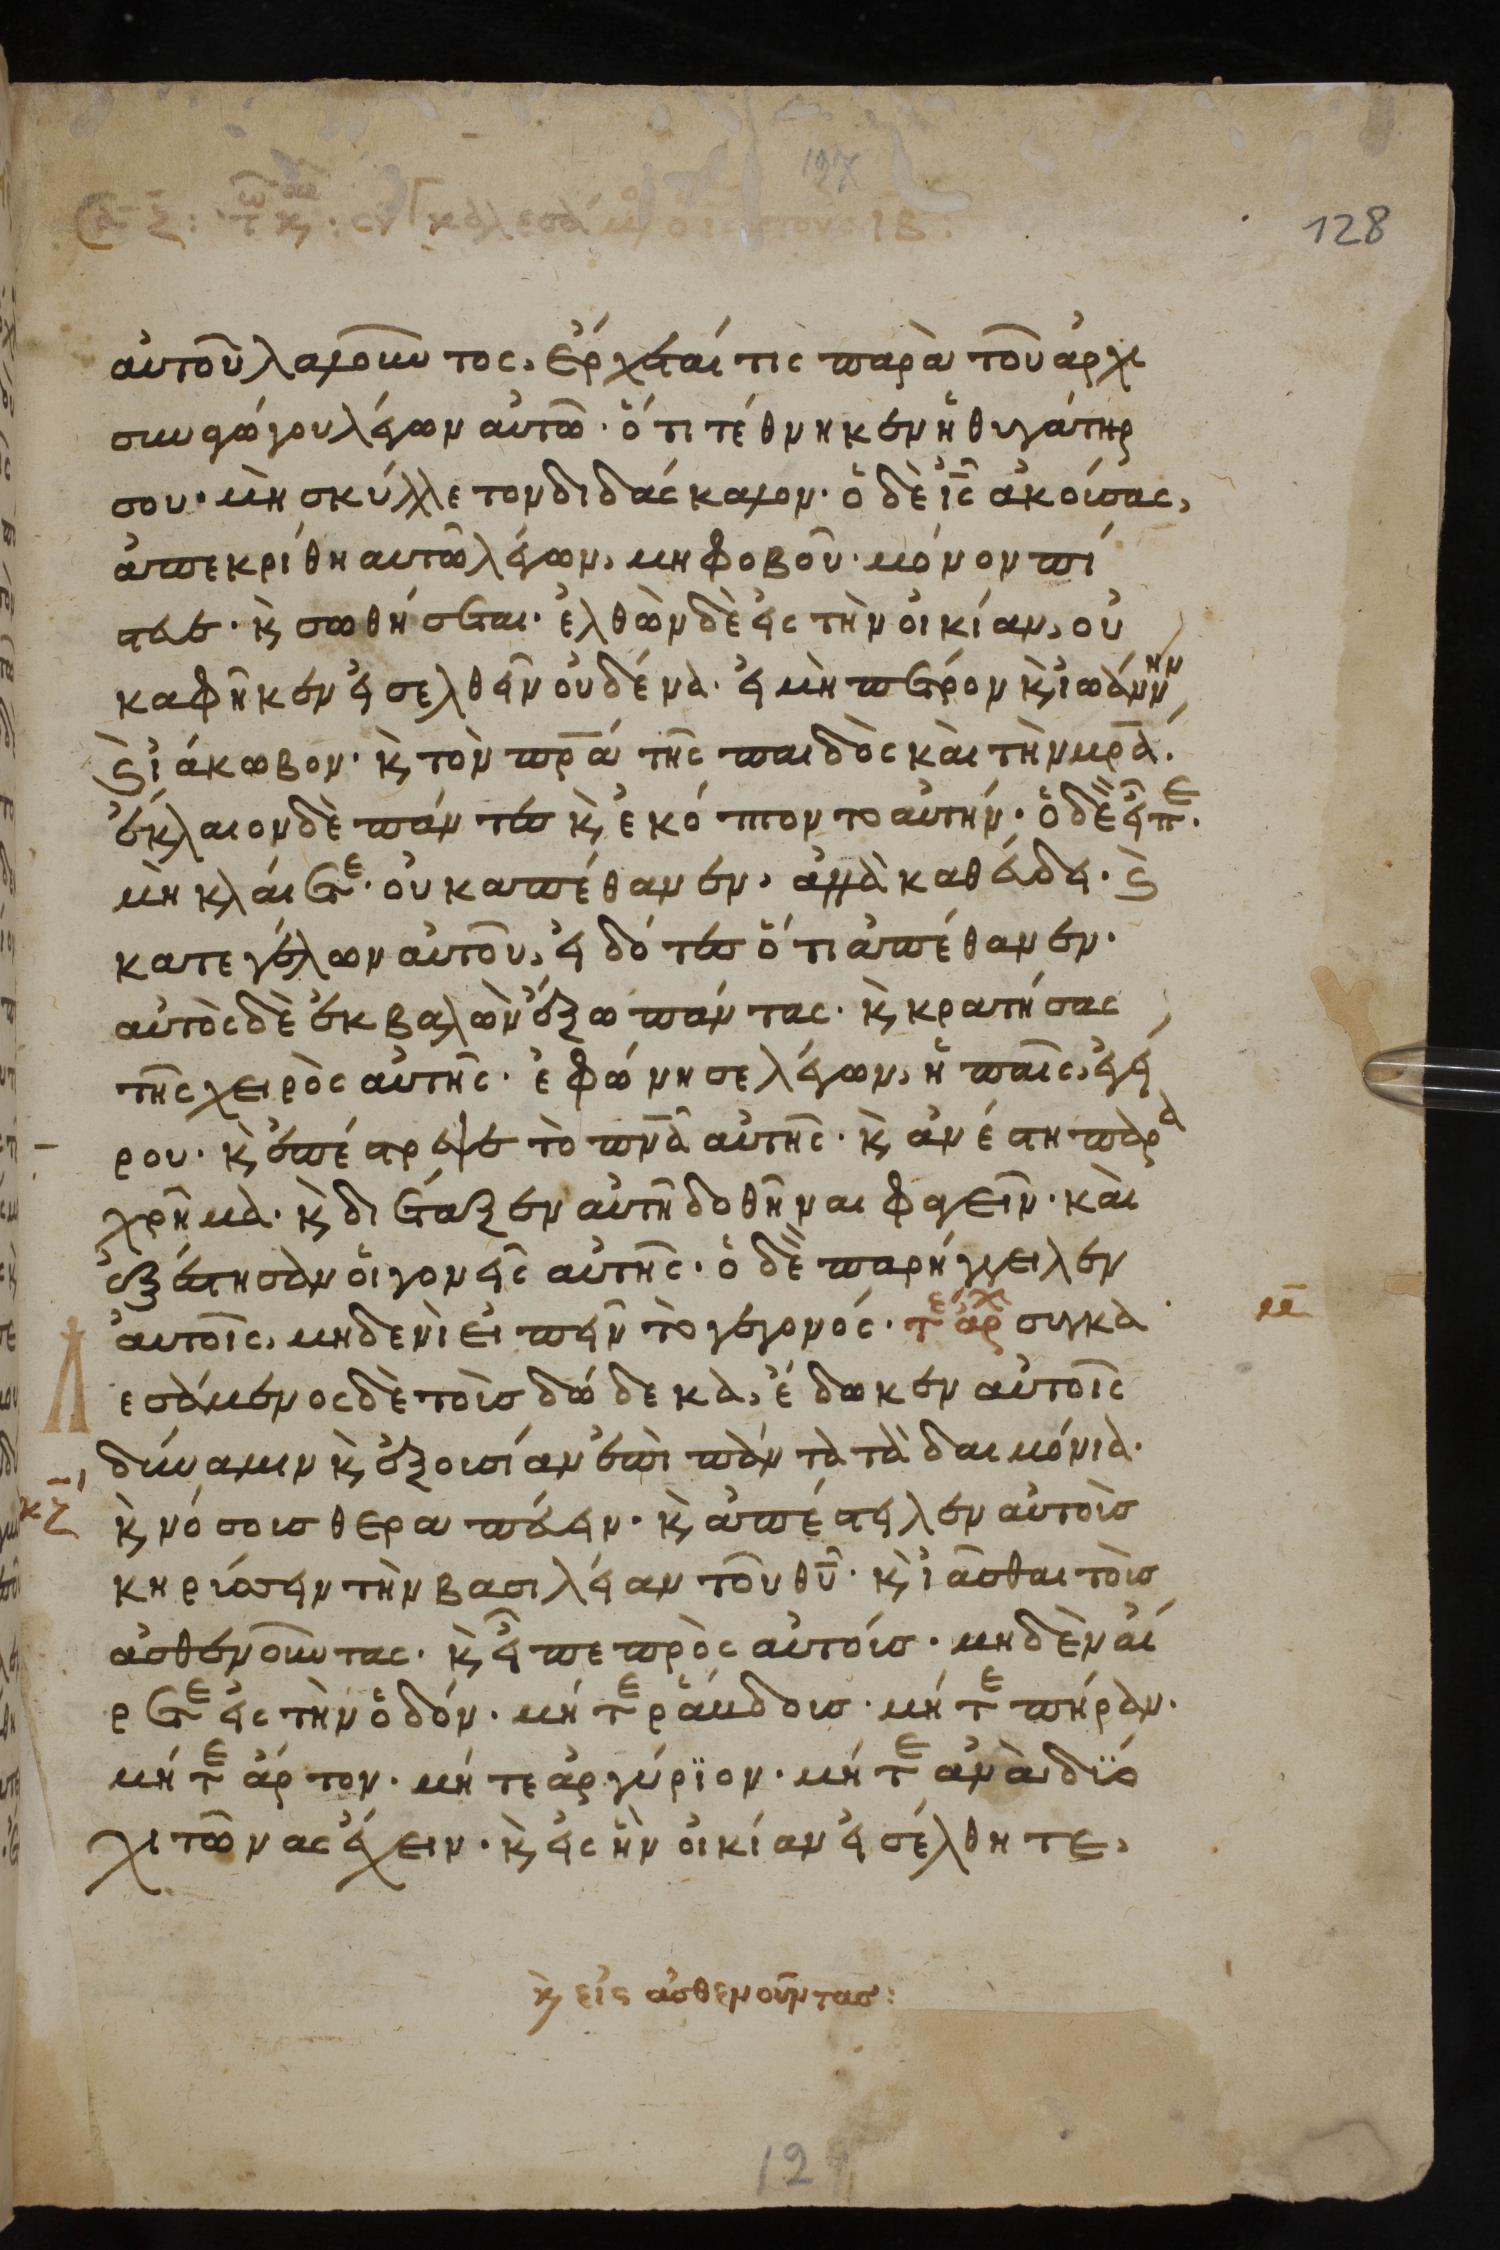 128
αὐτοῦ λαλοῦντος, ἔρχεταί τις παρὰ τοῦ ἀρχι
συναγώγου λέγων αὐτῶ· ὅτι τέθνηκεν ἡ θυγάτηρ
σου· μὴ σκύλλε τον διδάσκαλον· ὁ δὲ ἰς̅ ἀκούσας,
ἀπεκρίθη αυτῶ λέγων, μη φοβοῦ· μόνον πί
στευε· κ̀ σωθήσεται· ἐλθὼν δὲ εἰς τὴν οἰκίαν, οὐ
κ αφῆκεν εἰσελθεῖν οὐδένα· εἰ μὴ πέτρον κ̀ ἰωάννην
κ̀ ἰάκωβον· κ̀ τὸν πρ̅α τῆς παιδὸς καὶ τὴν μρ̅α·
ἔκλαιον δὲ πάντες κ̀ ἐκόπτοντο αὐτήν· ὁ δὲ εἶπε·
μὴ κλαίετε· οὐκ απέθανεν, ἀλλὰ καθεύδει· κ̀
κατεγέλων αὐτοῦ, εἰδότες ὅτι ἀπέθανεν·
αὐτὸς δὲ ἐκβαλὼν ἔξω πάντας· κ̀ κρατήσας
τῆς χειρὸς αὐτῆς· ἐφώνησε λέγων, ἡ παῖς, ἐγεί
ρου· κ̀ ἐπέστρεψε τὸ πν̅α αὐτῆς· κ̀ ἀνέστη παρα
χρῆμα· κ̀ διέταξεν αὐτῆ δοθῆναι φαγεῖν· καὶ
ἐξέστησαν οἱ γονεῖς αὐτῆς· ὁ δὲ παρήγγειλεν
ἀυτοῖς, μηδενὶ ειπεῖν τὸ γεγονός· τε ἀρχ συγκα
εσάμενος δὲ τοὺς δώδεκα, ἔδωκεν αὐτοῖς
δύναμιν κ̀ ἐξουσίαν ἐπὶ πάντα τὰ δαιμόνια·
κ̀ νόσους θεραπεύειν· κ̀ ἀπέστειλεν αὐτοὺς
κηρύσσειν τὴν βασιλείαν τοῦ θυ̅· κ̀ ἰᾶσθαι τοὺς
ἀσθενοῦντας· κ̀ εἶπε πρὸς αὐτούς· μηδὲν αἴ
ρετε εἰς τὴν ὁδόν· μήτε ῥάβδους· μήτε πήραν·
μήτε ἄρτον· μήτε ἀργύριον· μήτε ἀνὰ δύο
χιτῶνας ἔχειν· κ̀ εἰς ἣν οἰκίαν εἰσέλθητε,
κ̀ εἰς ἀσθενοῦντας: